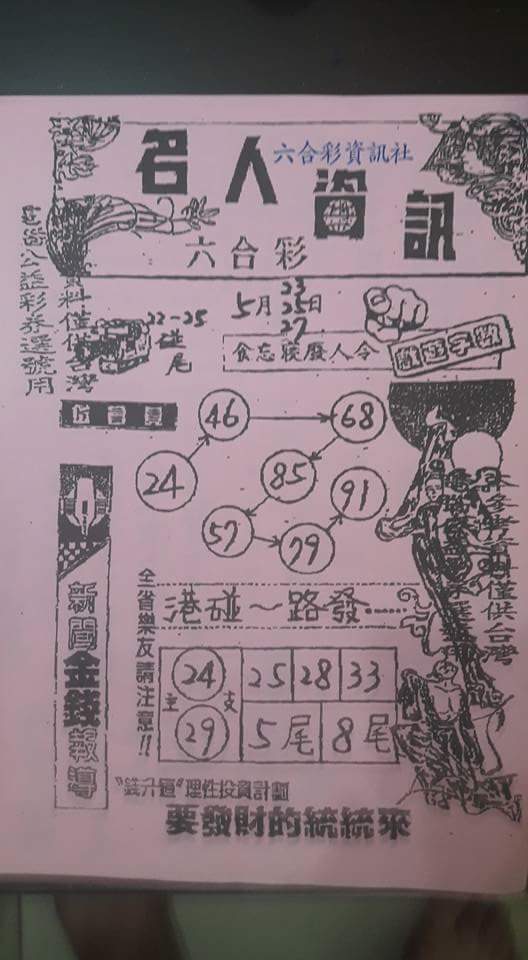 名人資訊
六合彩資訊社
六合彩
5月23
25日
27
22-25
碰
尾
食忘寢廢人令
資料僅供台灣
公益彩券選號用
46
68
24
85
91
57
79
新聞金錢報導
全省樂友請注意!!
港碰~路發……
主
24
29
支
25
28
33
5尾
8尾
本參考資料僅供台灣
理性投資計劃
要發財的統統來